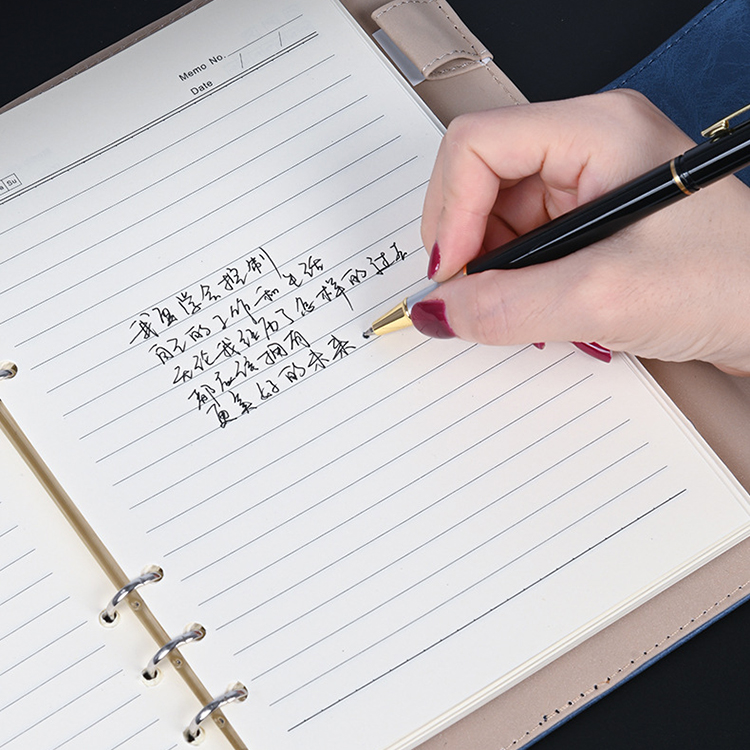 Memo No.
Date / /
Su
我要学会控制
自己的工作和生活
无论我经历了怎样的过去
都应该拥有
更美好的未来